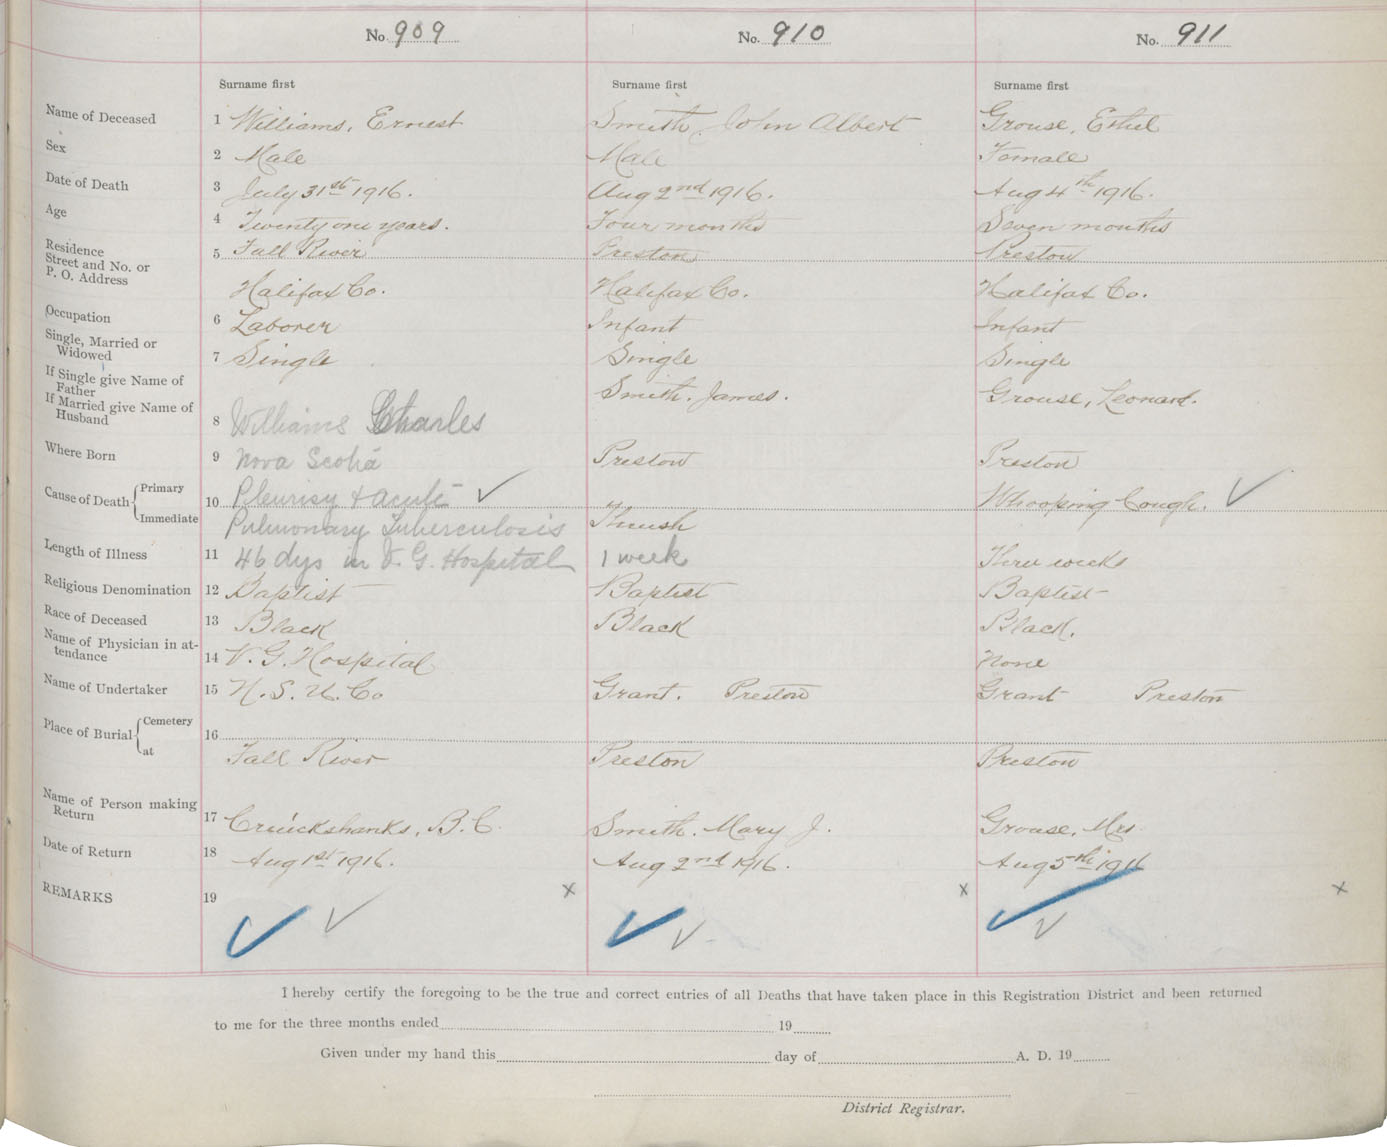 No. 909 No. 910 No. 911
Surname first Surname first Surname first
Name of Deceased 1 Williams, Ernest Smith, John Albert Grouse, Ethel
Sex 2 Male Male Female
Date of Death 3 July 31st 1916. Aug 2nd 1916. Aug 4th 1916.
Age 4 Twenty one years. Four months Seven months
Residence 5 Fall River Preston Preston
Street and No. or
P. O. Address Halifax Co. Halifax Co. Halifax Co.
Occupation 6 Laborer Infant Infant
Single, Married or
Widowed 7 Single Single Single
If Single give Name of
Father Smith. James. Grouse, Leonard.
If Married give Name of
Husband 8 Williams Charles
Where Born 9 Nova Scotia Preston Preston
Cause of Death Primary 10 Pleurisy + acute Whooping Cough.
Immediate Pulmonary Tuberculosis Thrush
Length of Illness 11 46 dys in V. G. Hospital 1 week Three weeks
Religious Denomination 12 Baptist Baptist Baptist
Race of Deceased 13 Black Black Black.
Name of Physician in at-
tendance 14 V. G. Hospital None
Name of Undertaker 15 N. S. U. Co Grant. Preston Grant Preston
Place of Burial Cemetery 16
at Fall River Preston Preston
Name of Person making
Return 17 Cruickshanks, B. C. Smith. Mary J. Grouse, Mrs.
Date of Return 18 Aug 1st 1916. Aug 2nd 1916. Aug 5th 1916
REMARKS 19 x x x
I hereby certify the foregoing to be the true and correct entries of all Deaths that have taken place in this Registration District and been returned
to me for the three months ended 19
Given under my hand this day of A. D. 19
District Registrar.